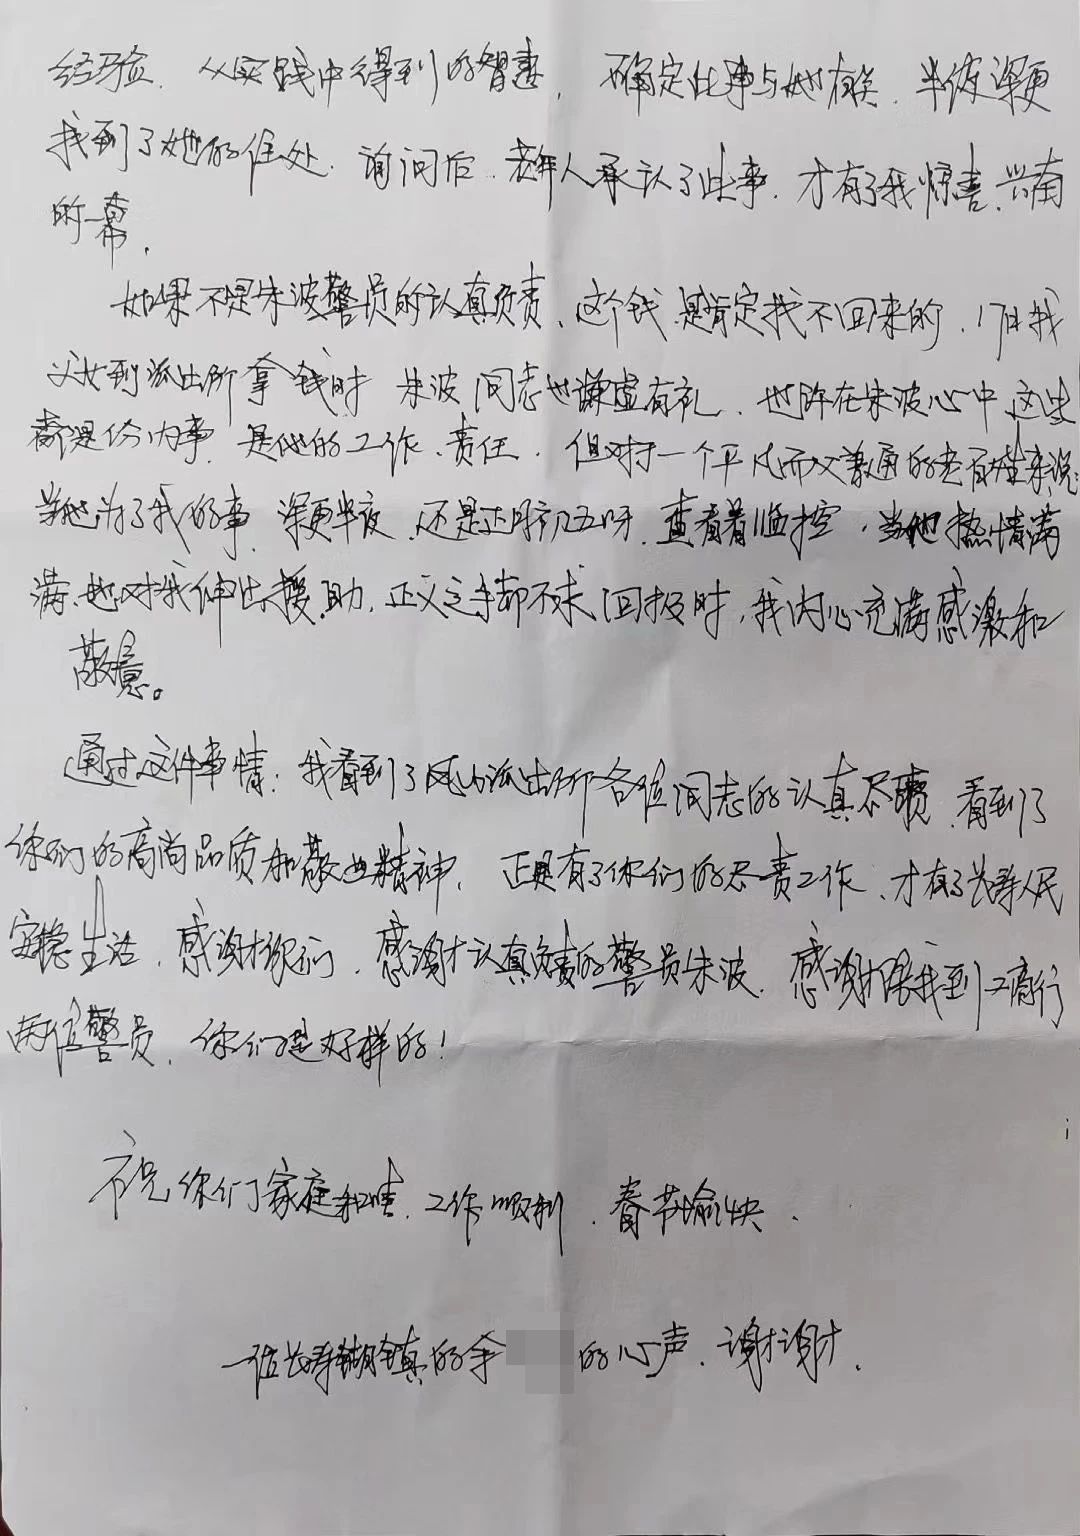 经验、从实践中得到的智慧,确定此事与她有关、半夜深更
找到了她的住处、询问后、老年人承认了此事、才有了我惊喜、兴奋
的一幕,
如果不是朱波警员的认真负责、这个钱是肯定找不回来的,17日我
父女到派出所拿钱时 朱波同志也谦虚有礼、也许在朱波心中这些
都是份内事、是他的工作、责任、但对于一个平凡而又普通的老百姓来说:
当他为了我的事、深更半夜、还是正月初五呀、查看着监控,当他热情满
满、地对我伸出援助,正义之手却不求回报时,我内心充满感激和
敬意。
通过这件事情:我看到了凤山派出所各位同志的认真尽责、看到了
你们的高尚品质和敬业精神,正是有了你们的尽责工作、才有了长寿人民
安稳生活、感谢你们、感谢认真负责的警员朱波、感谢陪我到工商行
两位警员、你们是好样的!
祝你们家庭和睦、工作顺利、春节愉快、
一位长寿湖镇的余 的心声、谢谢,